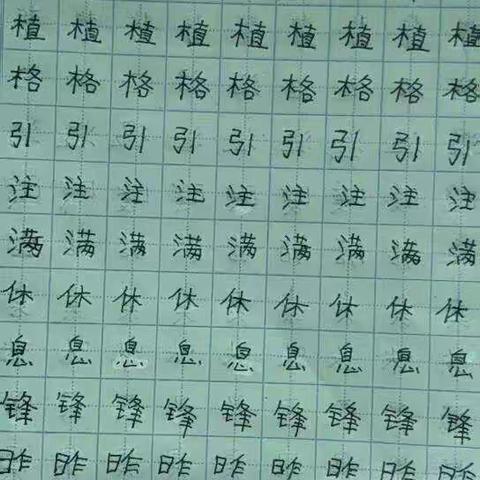 植植植植植植植植植
格格格格格格格格格
引引引引引引引引引
注注注注注注注注注
满满满满满满满满满
休休休休休休休休休
息息息息息息息息息
锋锋锋锋锋锋锋锋锋
昨昨昨昨昨昨昨昨昨